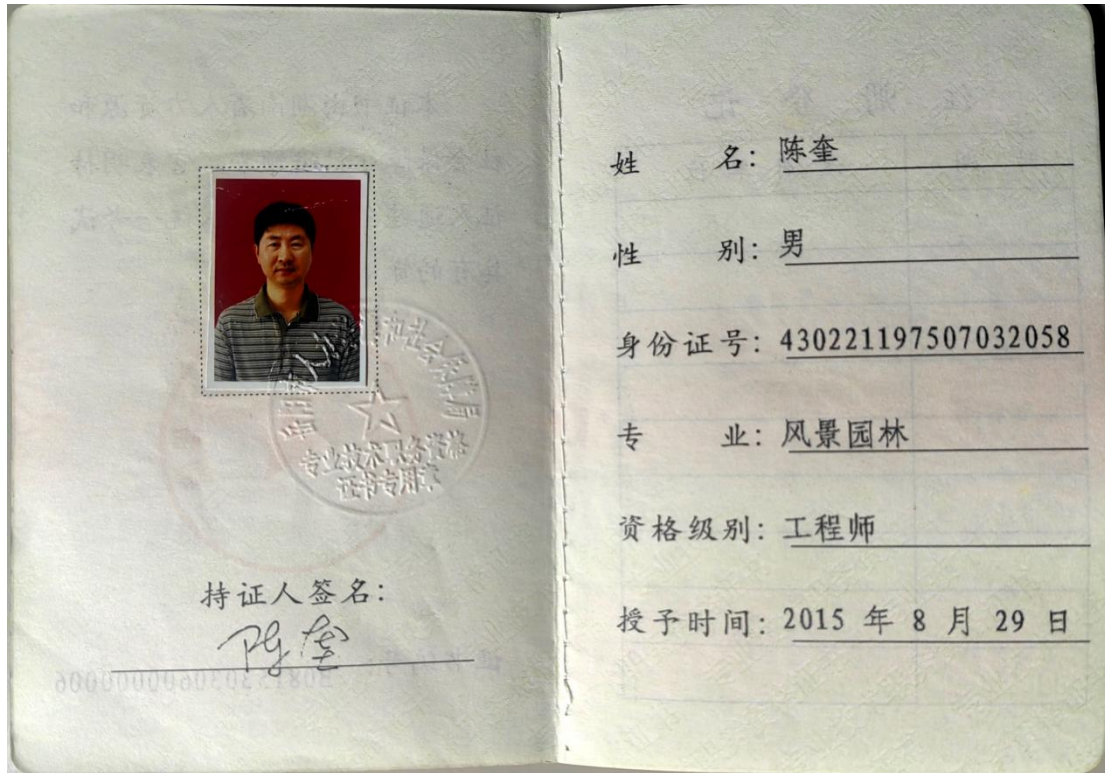 专业技术职务资格
证书专用章
持证人签名：
陈奎
姓 名：陈奎
性 别：男
身份证号：430221197507032058
专 业：风景园林
资格级别：工程师
授予时间：2015 年 8 月 29 日